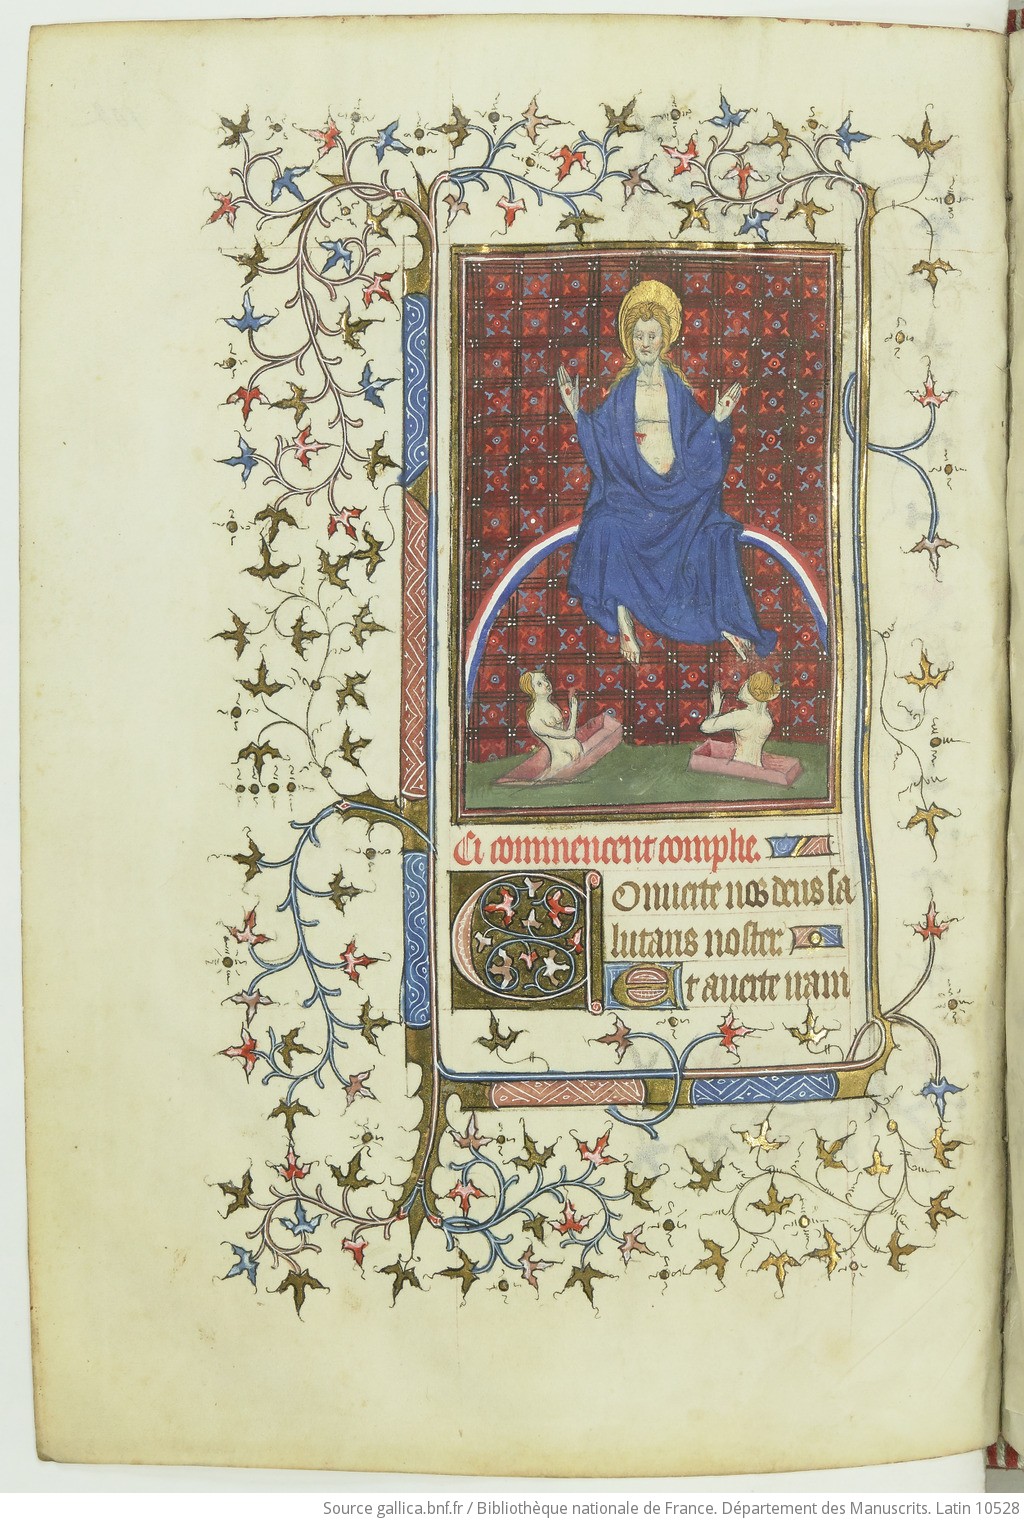 Ci commencent complie.
Conuerte nos deus sa
lutaris noster.
Et auerte iram
Source gallica.bnf.fr / Bibliothèque nationale de France. Département des Manuscrits. Latin 10528